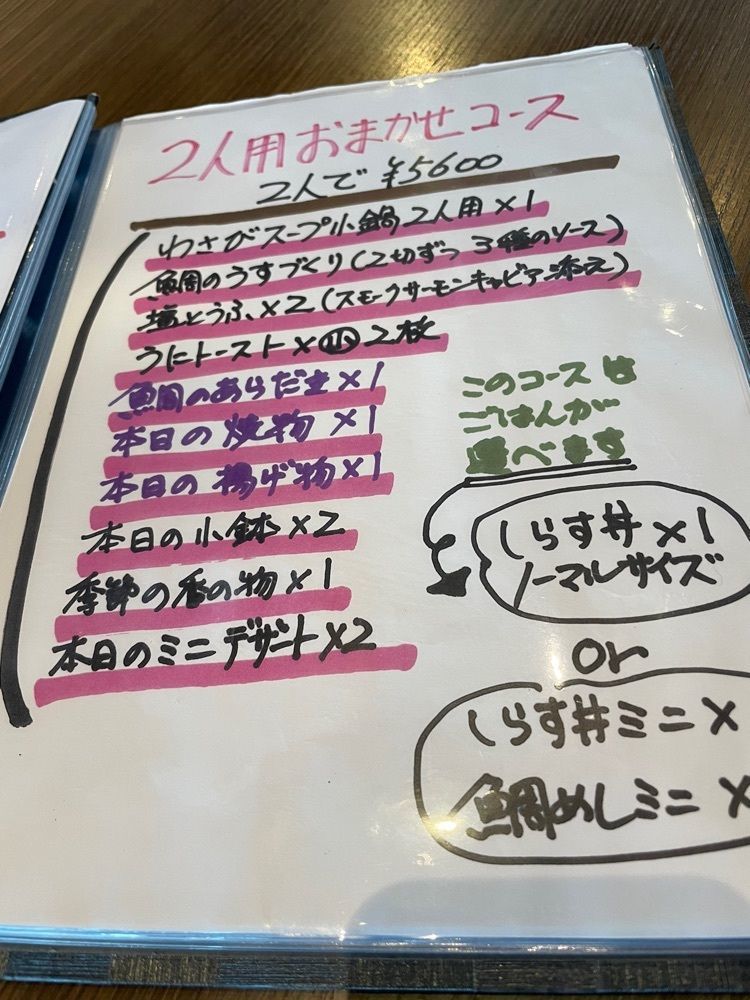 2人用おまかせコース
2人で ¥5600
わさびスープ小鍋2人用×1
鯛のうすづくり(2切ずつ 3種のソース)
塩とうふ×2(スモークサーモンキャビア添え)
うにトースト×小2枚
鯛のあらだき×1
本日の焼物×1
本日の揚げ物×1
本日の小鉢×2
季節の香の物×1
本日のミニデザート×2
このコースは
ごはんが
選べます
しらす丼×1
ノーマルサイズ
or
しらす丼ミニ×
鯛めしミニ×